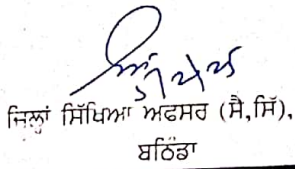 ਜਿਲਾਂ ਸਿੱਖਿਆ ਅਫਸਰ (ਸੈ,ਸਿੱ),
ਬਠਿੰਡਾ